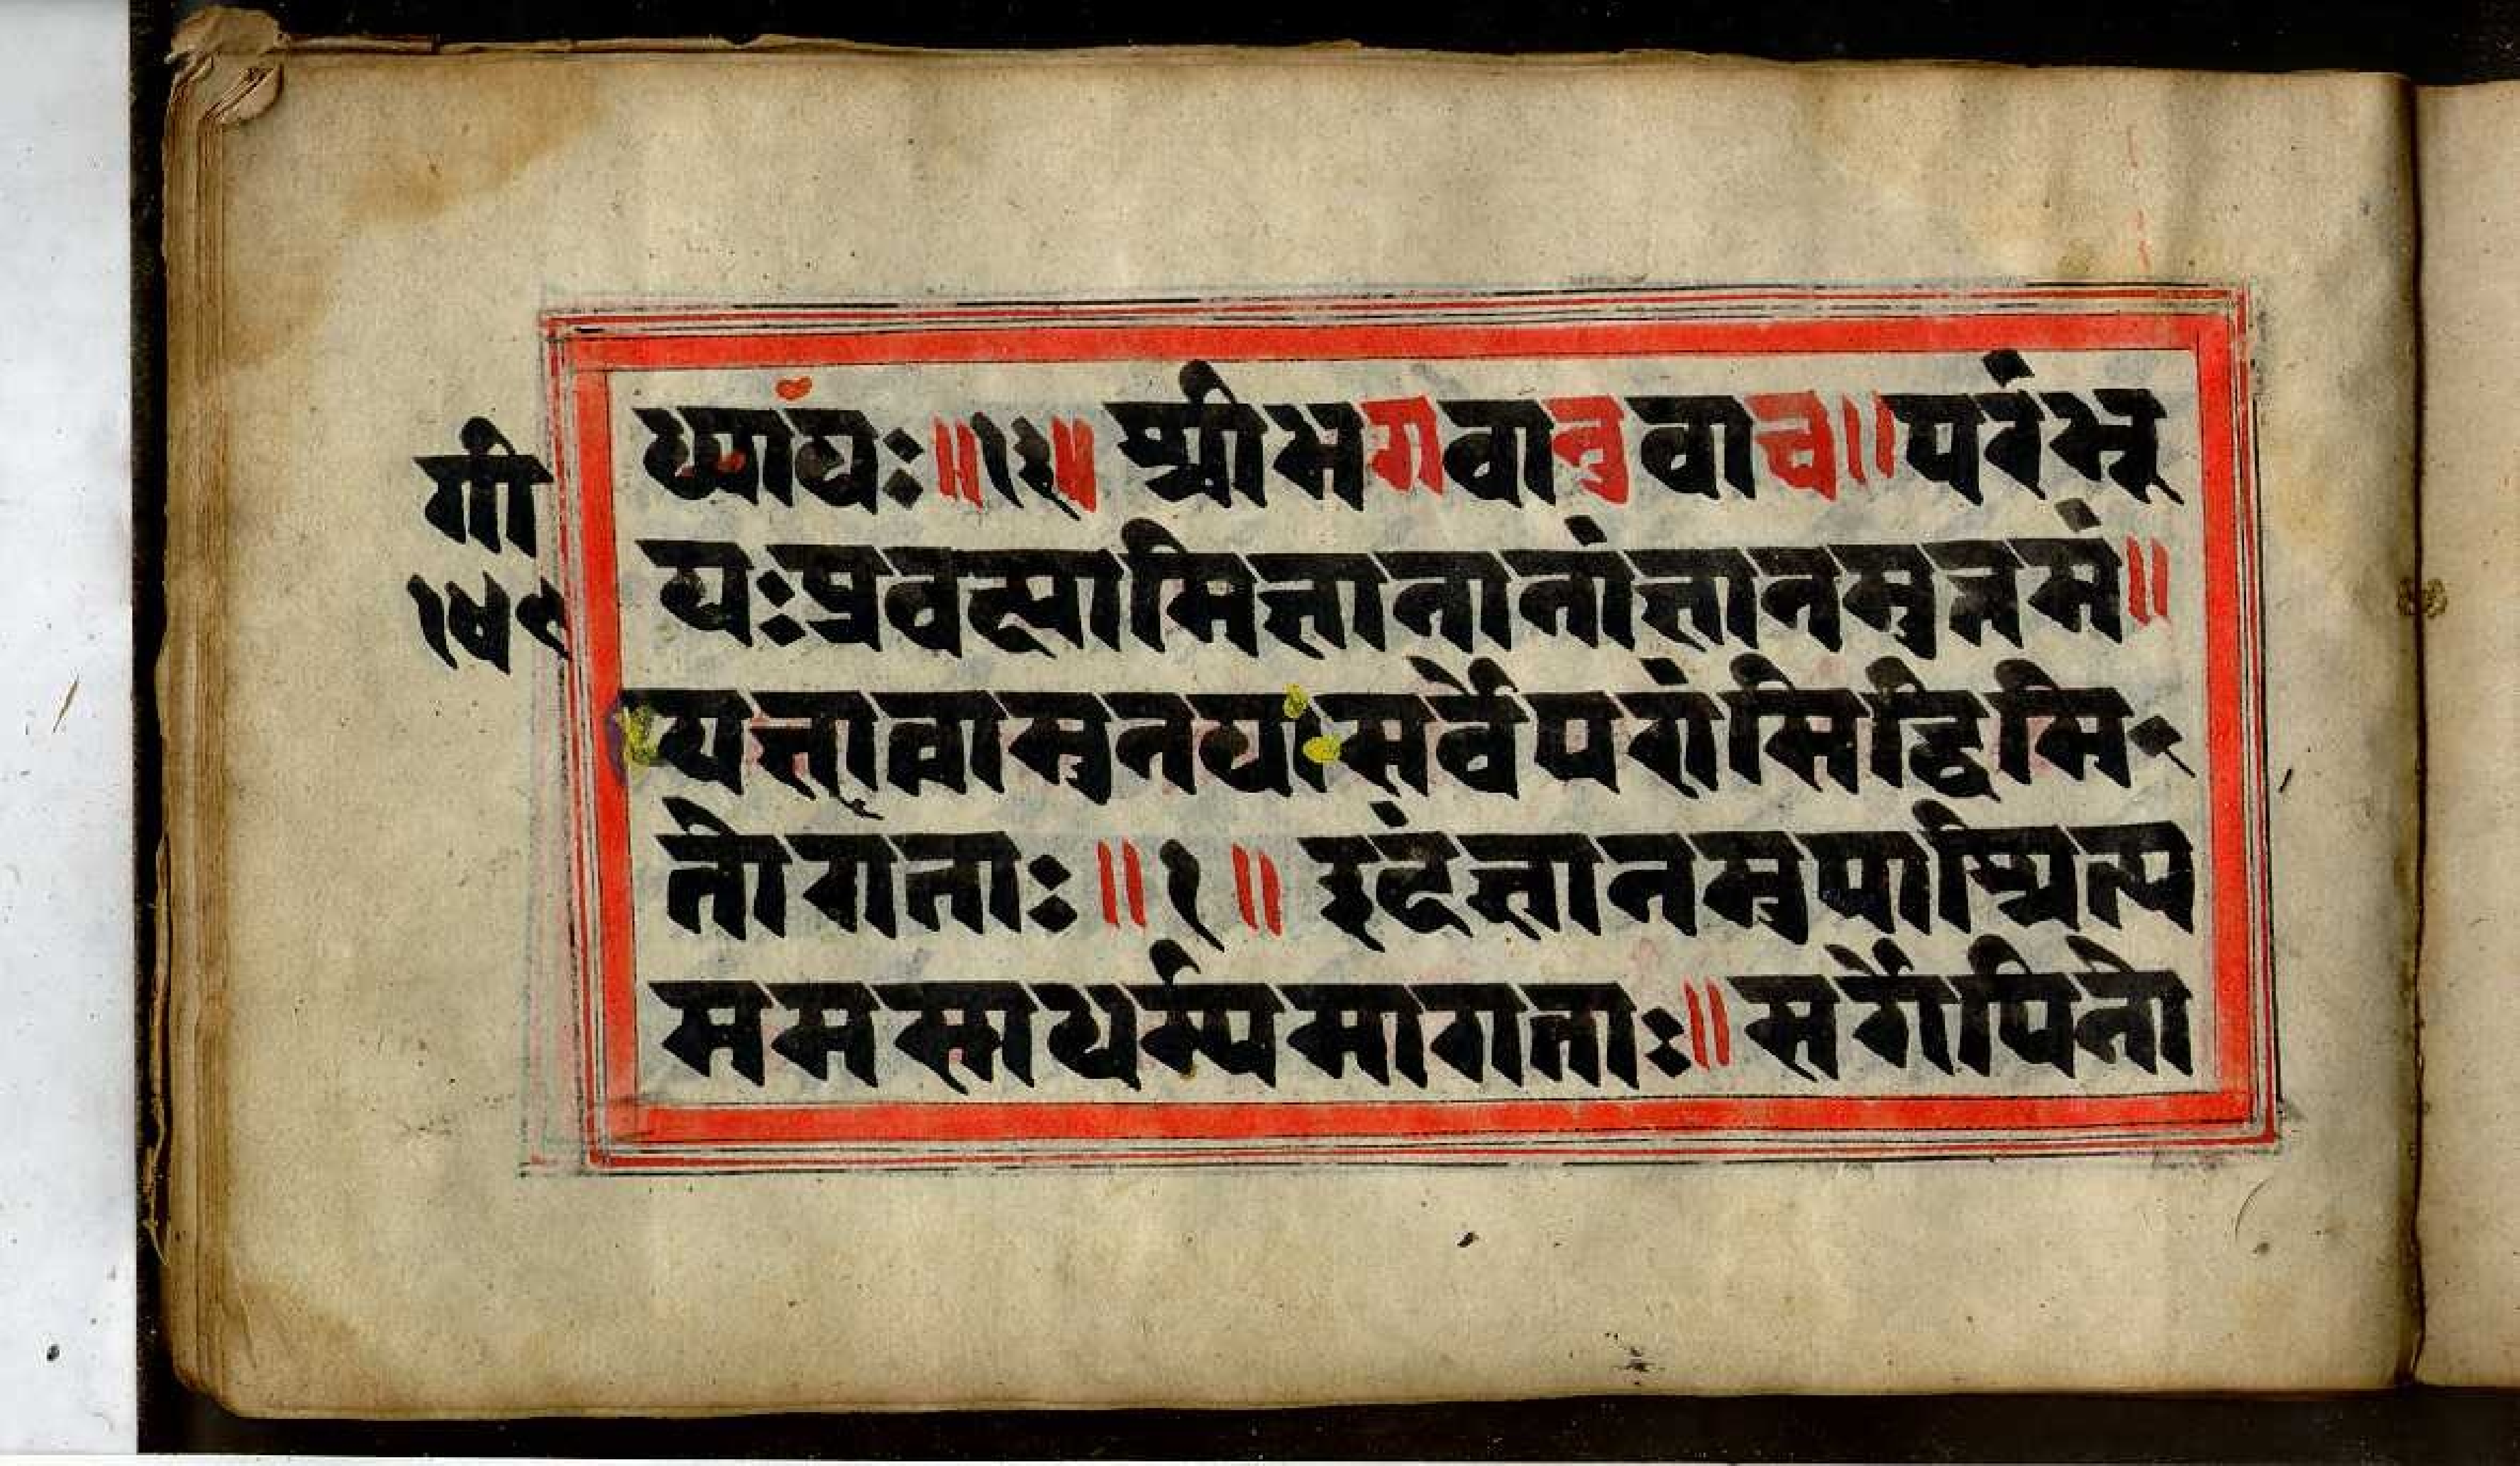 ध्यायः॥१३॥श्रीभगवानुवाच॥परंभू
यःप्रवक्ष्यामिज्ञानानांज्ञानमुत्तमं॥
यज्ज्ञात्वामुनयःसर्वेपरांसिद्धिमि-
तोगताः॥१॥इदंज्ञानमुपाश्रित्य
ममसाधर्म्यमागताः॥सर्गेपिनो
गी
१५९